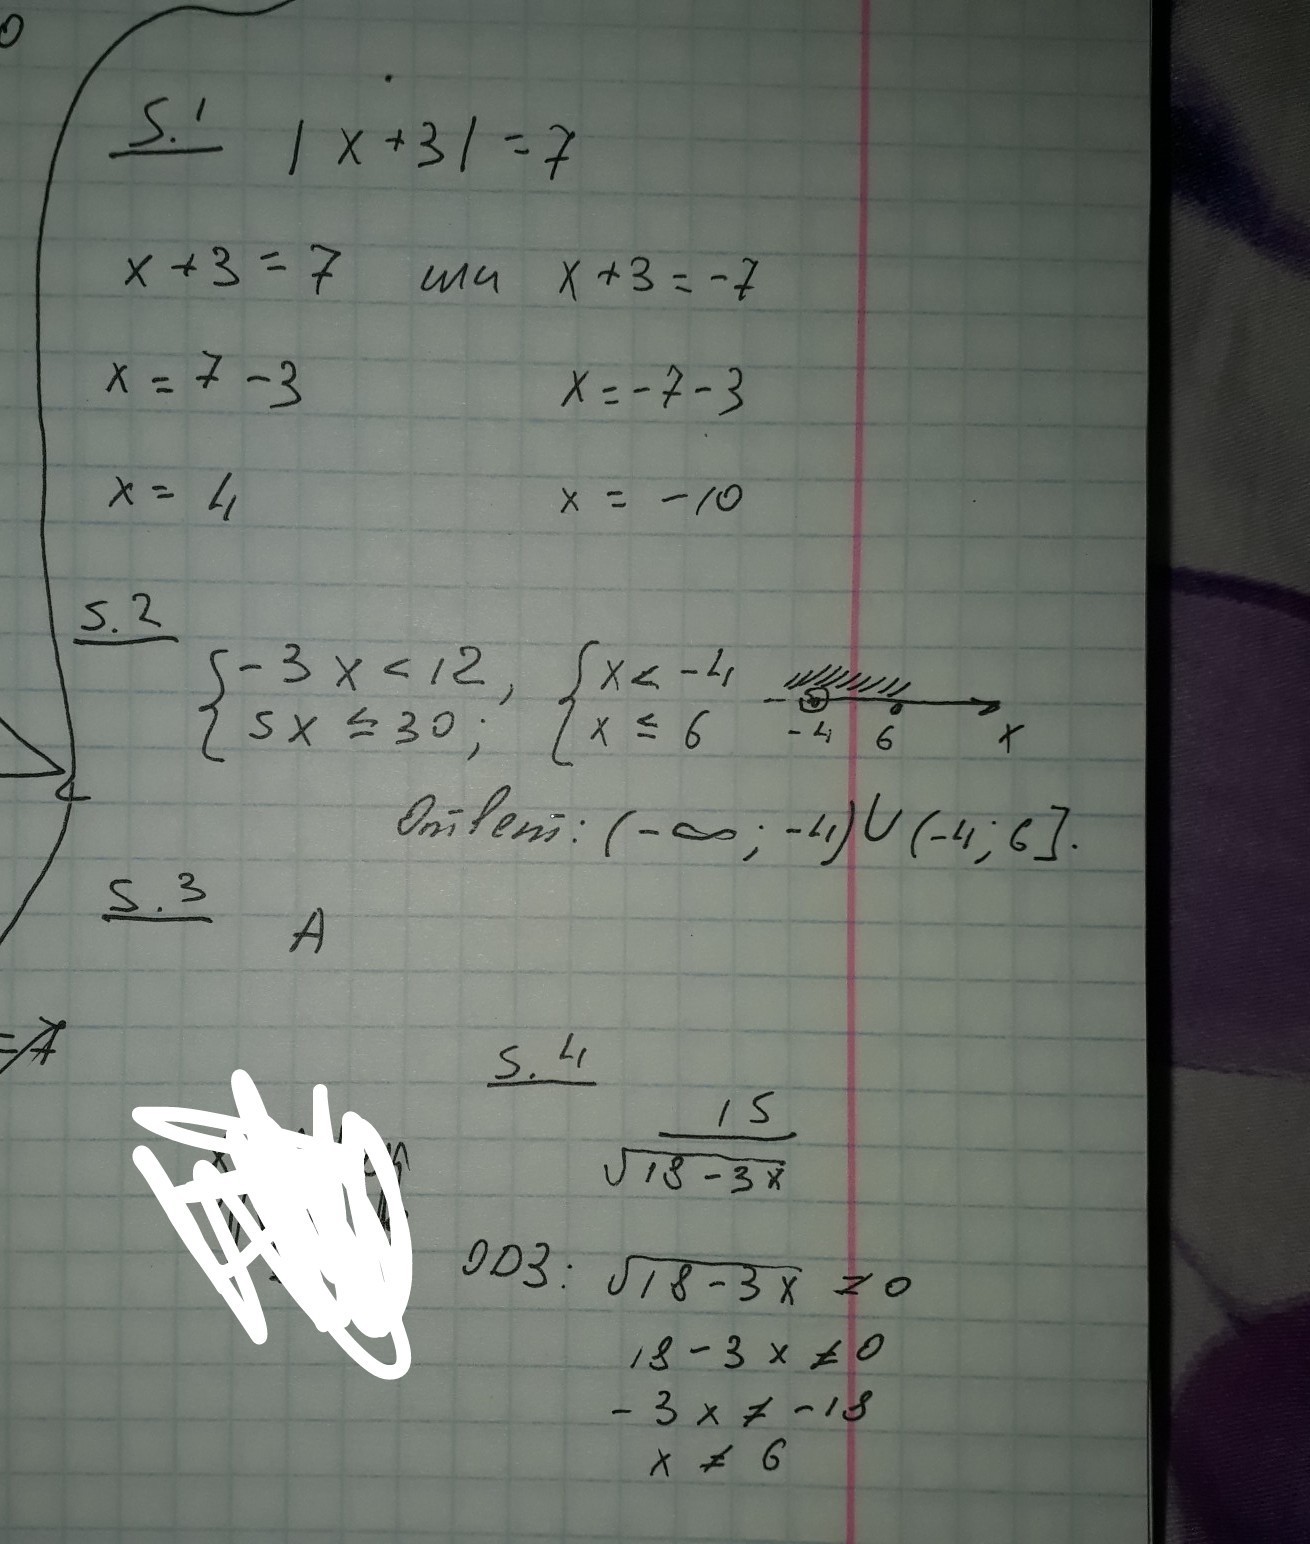 5.1 |x+3| = 7
x+3=7 или x+3=-7
x = 7-3 x=-7-3
x = 4 x = -10
5.2
{-3x<12, {x< -4
{5x ≤ 30; {x ≤ 6
-4 6 x
Ответ: (-∞; -4)∪(-4; 6].
5.3 A
=7
5.4
15
√18-3x
ОДЗ: √18-3x ≠ 0
18-3x ≠ 0
-3x ≠ -18
x ≠ 6